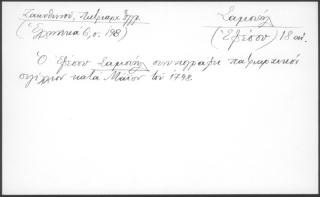 Ζακυθηνού, Πατριαρχ. έγγρ.
(Ελληνικά 6, σ. 198)
Σαμουήλ
(Εφέσου) 18 αι.
Ο Εφέσου Σαμουήλ συνυπογράφει πατριαρχικόν
σιγίλλιον κατά Μάιον του 1798.